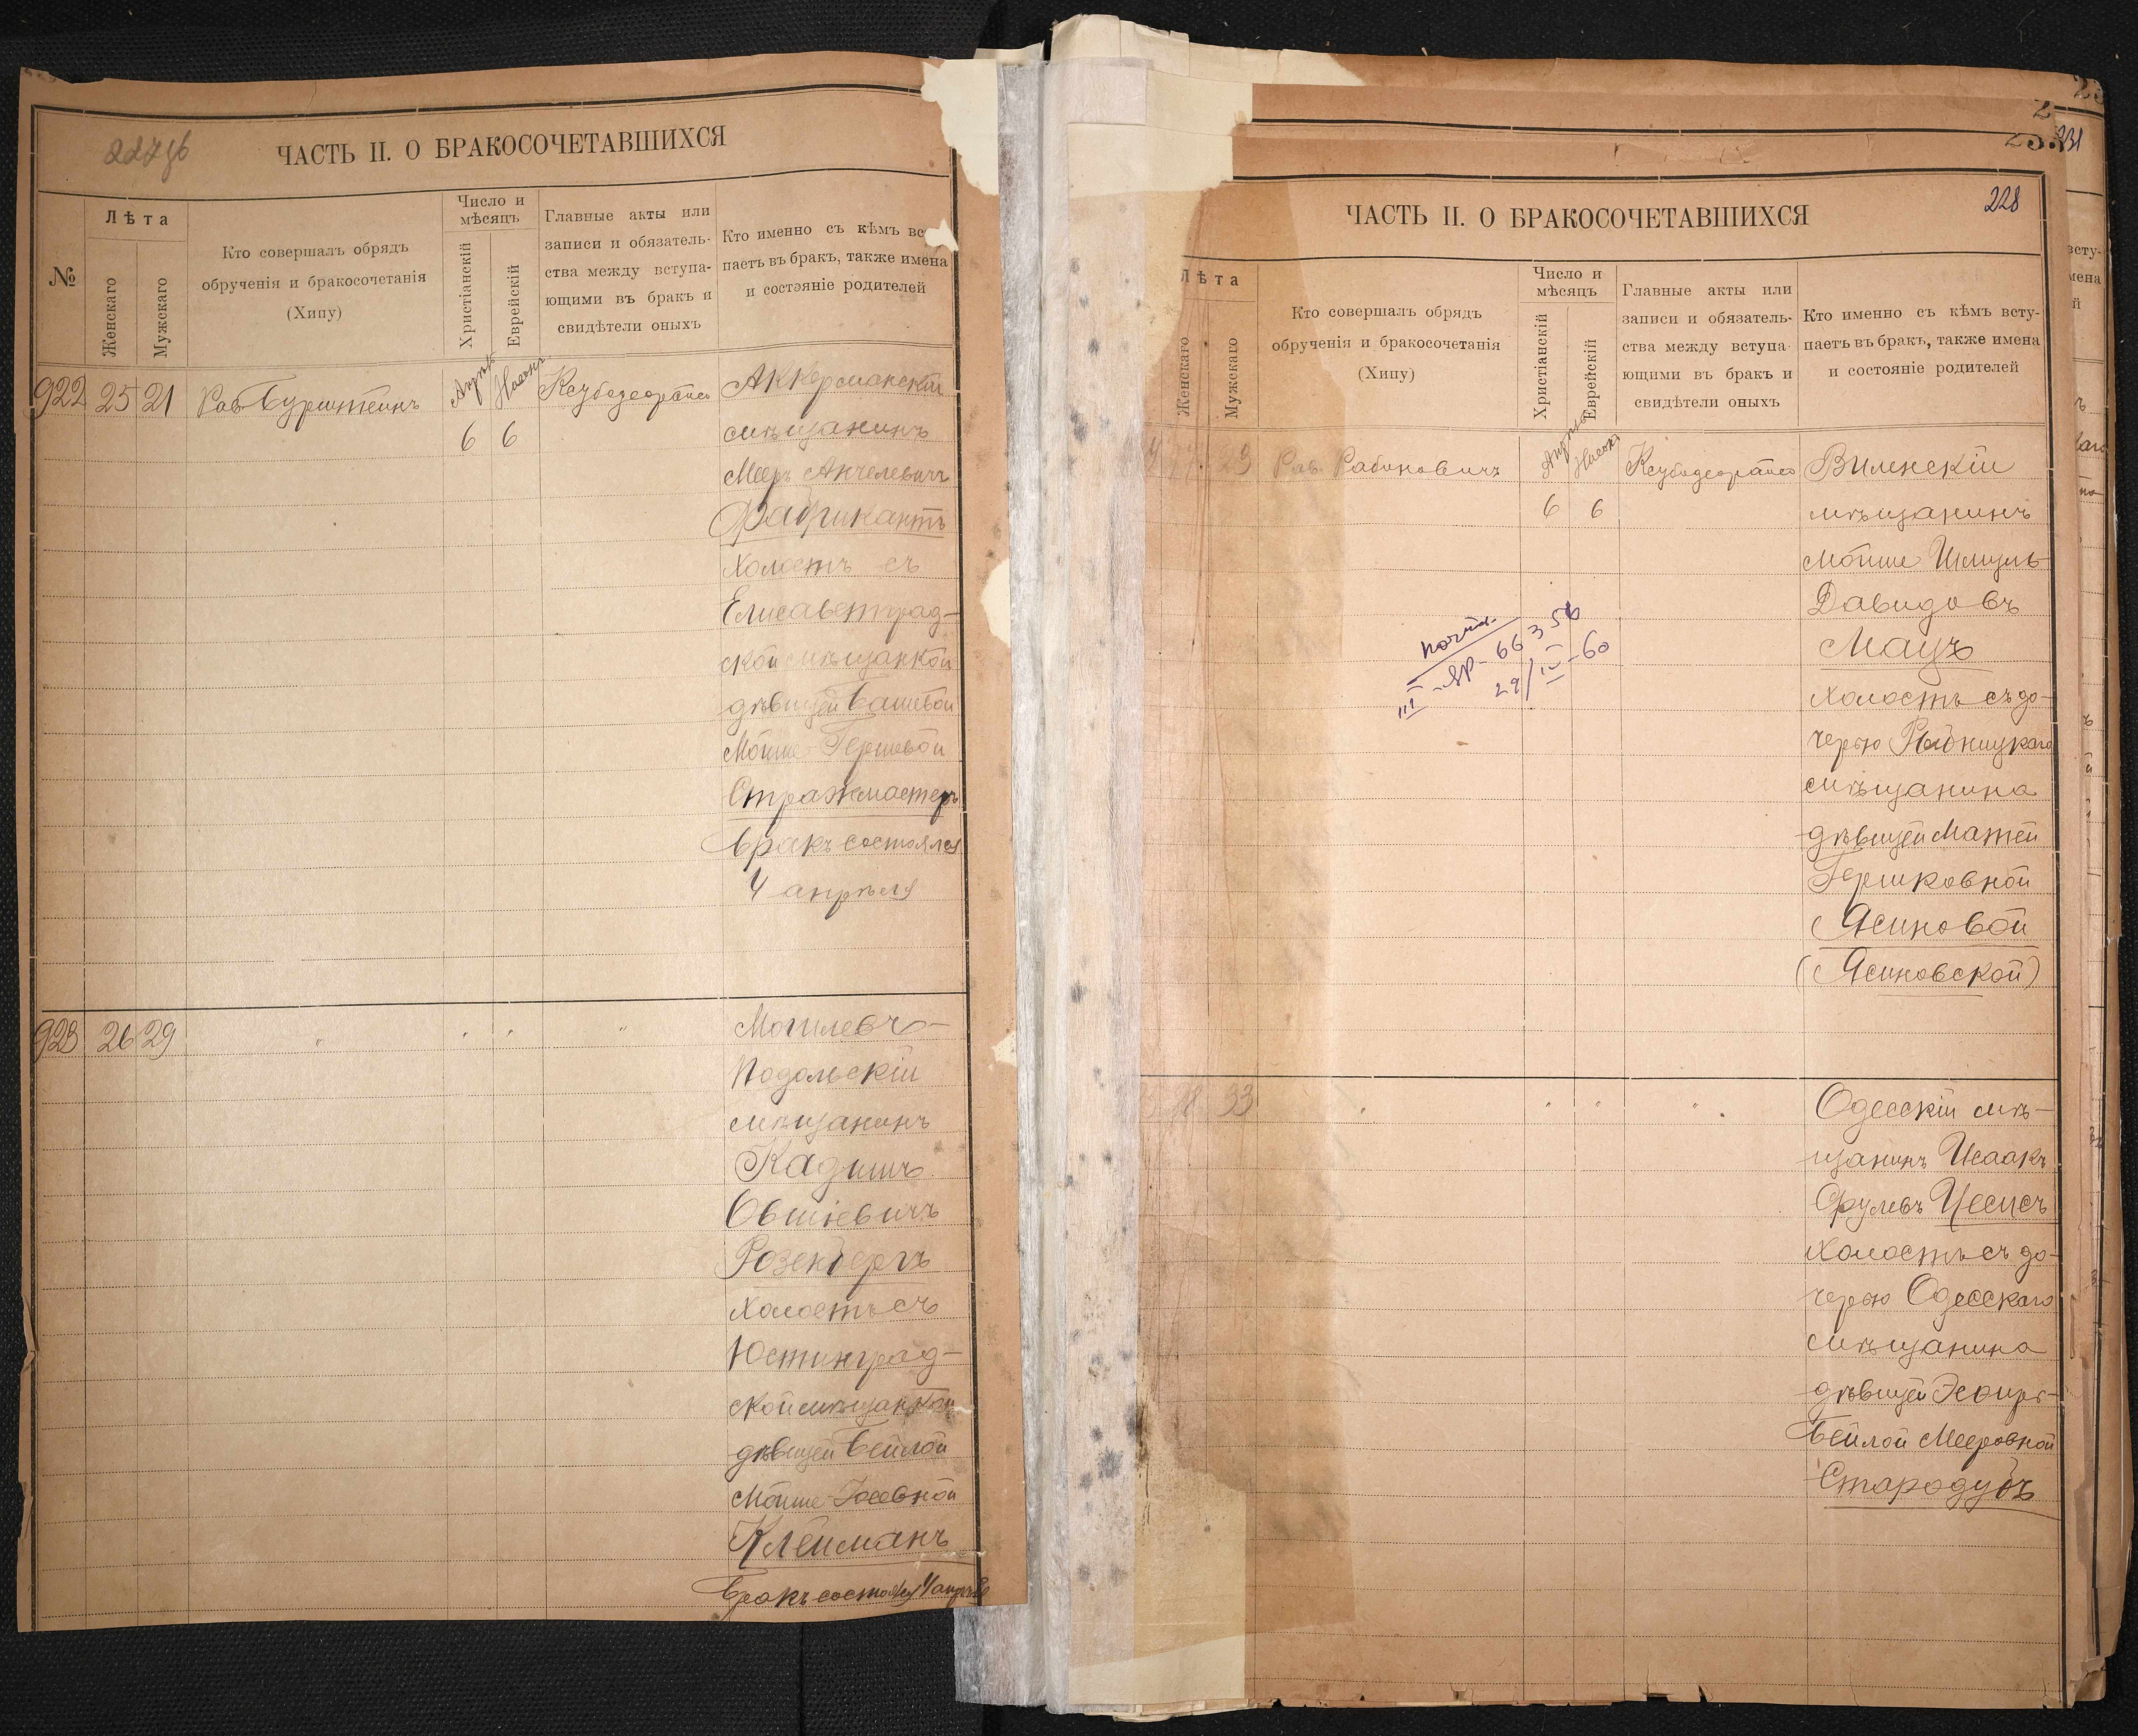 ЧАСТЬ II. О БРАКОСОЧЕТАВШИХСЯ
№
Лѣта
Женскаго
Мужскаго
Кто совершалъ обрядъ
обрученія и бракосочетанія
(Хипу)
Число и
мѣсяцъ
Христіанскій
Еврейскій
Главные акты или
записи и обязатель-
ства между вступа-
ющими въ бракъ и
свидѣтели оныхъ
Кто именно съ кѣмъ вс
паетъ въ бракъ, также имена
и состояніе родителей
922 25 21 Рав Бурштейнъ
6 6
Аккерманскій
мѣщанинъ
Мееръ Анчелевичъ
Фабрикантъ
холостъ съ
Елисаветград-
ской мѣщанкой
дѣвицей Башевой
Мойше-Гершевой
Стражмастеръ
Бракъ состоялся
4 апрѣля
923 26 29 " " " "
Могилевъ-
Подольскій
мѣщанинъ
Кадишъ
Овшіевичъ
Розенбергъ
холостъ съ
Юстинград-
ской мѣщанкой
дѣвицей Бейлой
Мойше-Іосевной
Клейманъ
Бракъ состоялся 4 апрѣля
228
231
ЧАСТЬ II. О БРАКОСОЧЕТАВШИХСЯ
Лѣта
Женскаго
Мужскаго
Кто совершалъ обрядъ
обрученія и бракосочетанія
(Хипу)
Число и
мѣсяцъ
Христіанскій
Еврейскій
Главные акты или
записи и обязатель-
ства между вступа-
ющими въ бракъ и
свидѣтели оныхъ
Кто именно съ кѣмъ всту-
паетъ въ бракъ, также имена
и состояніе родителей
29 Рав. Рабиновичъ
6 6
Виленскій
мѣщанинъ
Мойше Шмуль-
Давидовъ
Мацъ
холостъ съ до-
черью Рыбницкаго
мѣщанина
дѣвицей Матей
Гершковной
Ясиновой
(Ясиновской)
29/IV-60
33 " " " "
Одесскій мѣ-
щанинъ Исаакъ
Фулевъ Цесисъ
холостъ съ до-
черью Одесскаго
мѣщанина
дѣвицей Эсѳирь-
Бейлой Мееровной
Стародубъ